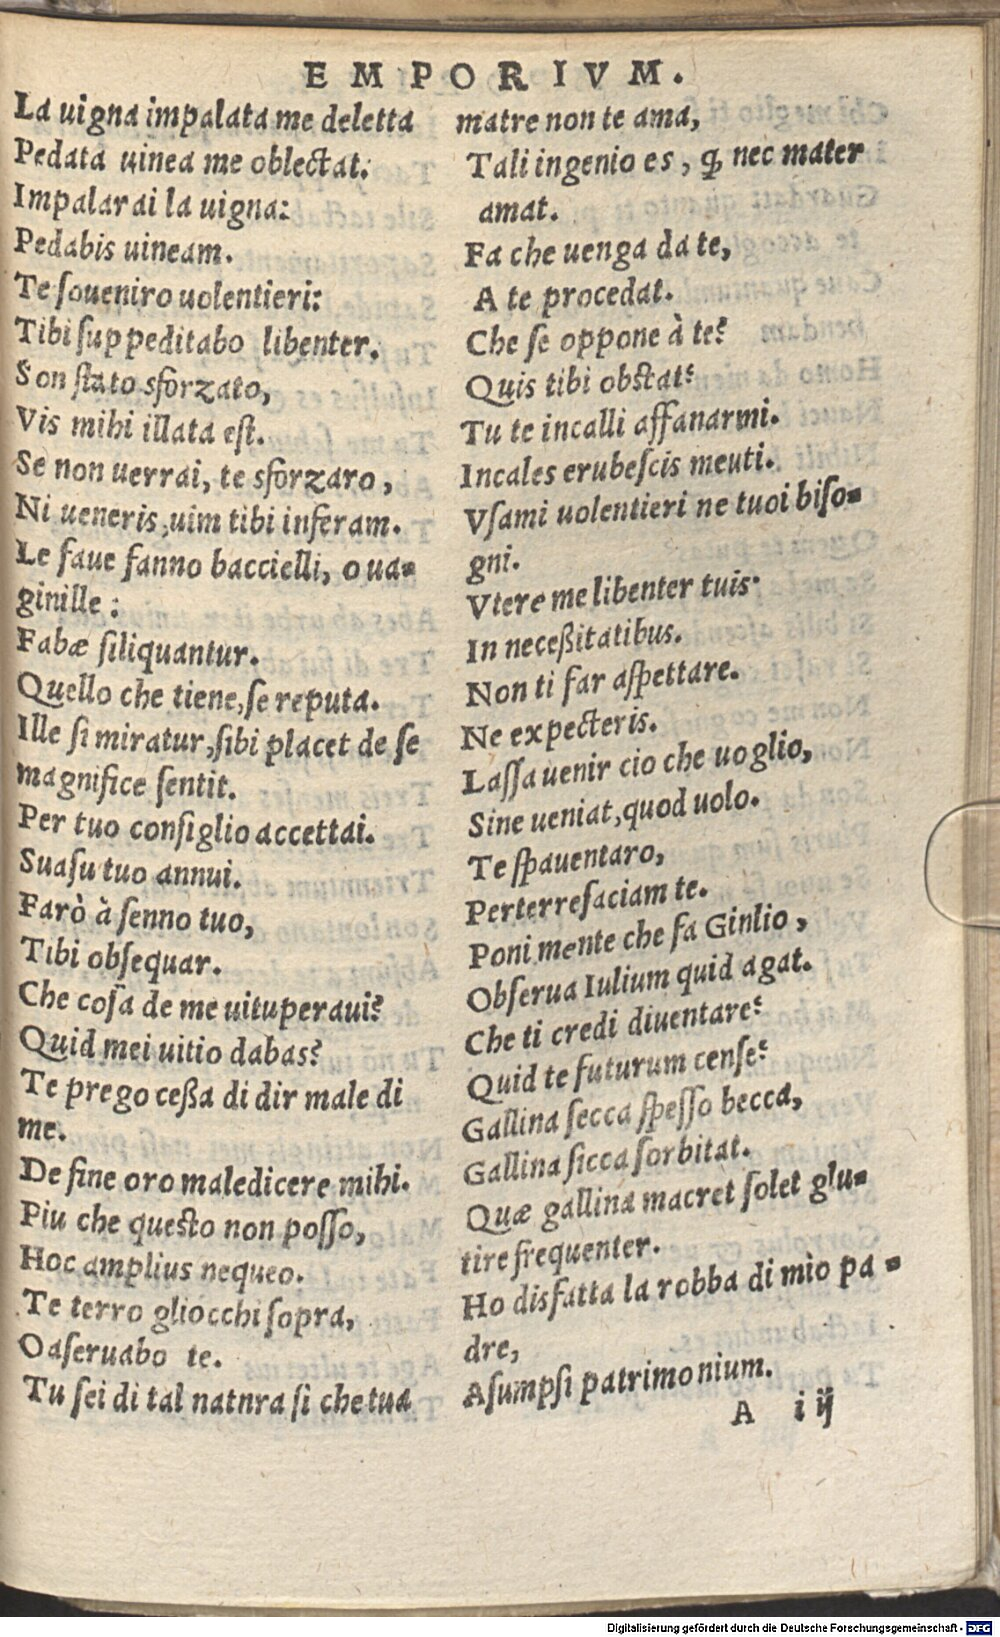 EMPORIVM.
La uigna impalata me deletta
Pedata uinea me oblectat.
Impalarai la uigna:
Pedabis uineam.
Te ſoueniro uolentieri:
Tibi ſuppeditabo libenter.
Son ſtato sforzato,
Vis mihi illata eſt.
Se non uerrai, te sforzaro,
Ni ueneris, uim tibi inferam.
Le faue fanno baccielli, o ua-
ginille:
Fabæ ſiliquantur.
Quello che tiene, ſe reputa.
Ille ſi miratur, ſibi placet de ſe
magnifice ſentit.
Per tuo conſiglio accettai.
Suaſu tuo annui.
Farò à ſenno tuo,
Tibi obſequar.
Che coſa de me uituperaui?
Quid mei uitio dabas?
Te prego ceßa di dir male di
me.
De fine oro maledicere mihi.
Piu che questo non poſſo,
Hoc amplius nequeo.
Te terro gliocchi ſopra,
Oaſeruabo te.
Tu ſei di tal natnra ſi che tua
matre non te ama,
Tali ingenio es, ꝙ nec mater
amat.
Fa che uenga da te,
A te procedat.
Che ſe oppone à te?
Quis tibi obſtat?
Tu te incalli affanarmi.
Incales erubeſcis meuti.
Vſami uolentieri ne tuoi biſo-
gni.
Vtere me libenter tuis
In neceßitatibus.
Non ti far aſpettare.
Ne expecteris.
Laſſa uenir cio che uoglio,
Sine ueniat, quod uolo.
Te ſpauentaro,
Perterrefaciam te.
Poni mente che fa Ginlio,
Obſerua Iulium quid agat.
Che ti credi diuentare?
Quid te futurum cenſe?
Gallina ſecca ſpeſſo becca,
Gallina ſicca ſorbitat.
Quæ gallina macret ſolet glu-
tire frequenter.
Ho disfatta la robba di mio pa-
dre,
Aſumpſi patrimonium.
A iij
Digitalisierung gefördert durch die Deutsche Forschungsgemeinschaft - DFG